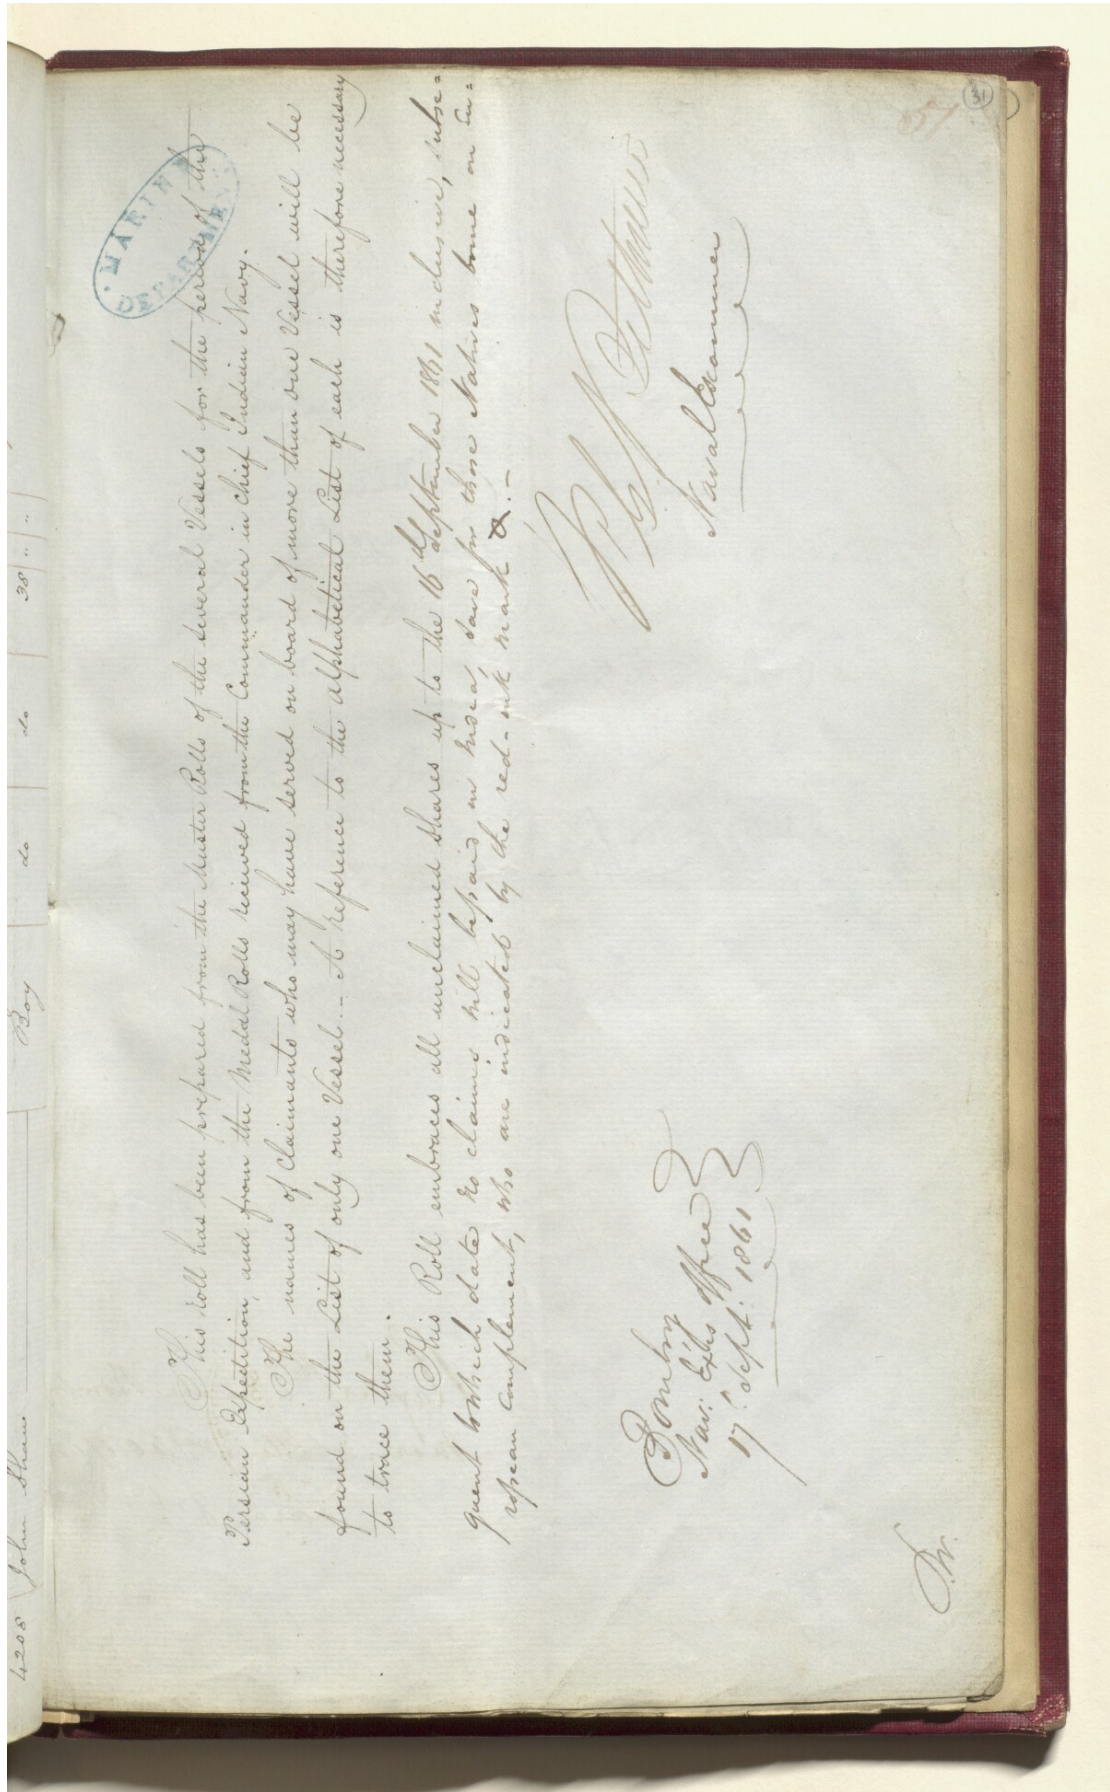 4208 John Shaw Boy do do 38 " "
MARINE
DEPARTMENT
31
57
This Roll has been prepared from the Muster Rolls of the several Vessels for the period of the
Persian Expedition, and from the Medal Rolls received from the Commander in Chief Indian Navy.
The names of Claimants who may have served on board of more than one Vessel will be
found on the List of only one Vessel. - A reference to the Alphabetical List of each is therefore necessary
to trace them.
This Roll embraces all unclaimed shares up to the 16th September 1861 inclusive, subse=
quent to which date no claims will be paid in India, save for those Natives borne on Eu=
ropean complement, who are indicated by the red-ink mark &.-
Naval Examiner
Bombay
Nav: Exrs Office
17th Sept: 1861.